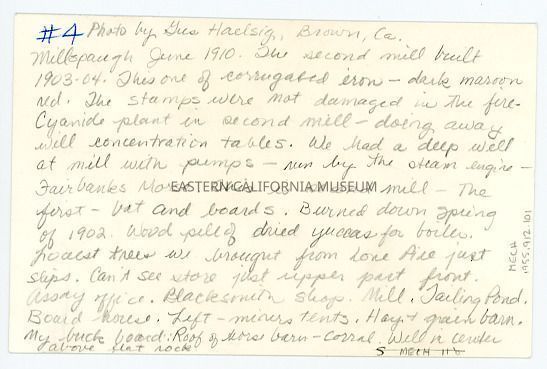 #4 Photo by Gus Haelsig, Brown, Ca.
Millspaugh June 1910. The second mill built
1903-04. This one of corrugated iron - dark maroon
red. The stamps were not damaged in the fire-
Cyanide plant in second mill - doing away
will concentration tables. We had a deep well
at mill with pumps - run by the steam engine -
Fairbanks mill - The
EASTERN CALIFORNIA MUSEUM
first - bat and boards. Burned down spring
of 1902. Wood pile of dried yuccas for boiler.
Locust trees we brought from Lone Pine just
slips. Can't see store just upper part front.
Assay office. Blacksmith shop. Mill. Tailing Pond.
Board house. Left - miners tents. Hay + grain barn.
My buck board. Roof of Horse barn - corral. Well in center
above flat rock
MECH
1955.912.101
S MECH 116